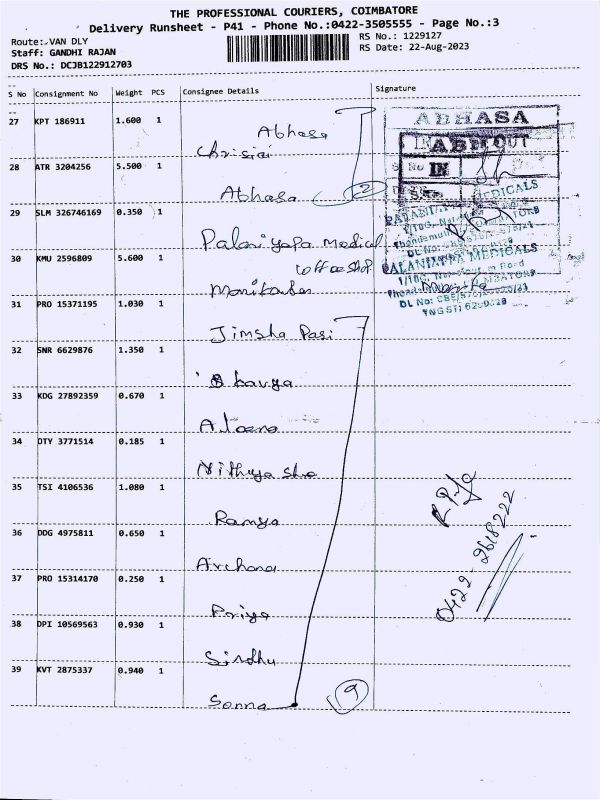 THE PROFESSIONAL COURIERS, COIMBATORE
Delivery Runsheet - P41 - Phone No.:0422-3505555 - Page No.:3
Route: VAN DLY
RS No.: 1229127
Staff: GANDHI RAJAN
RS Date: 22-Aug-2023
DRS No.: DCJB122912703
S No Consignment No Weight PCS Consignee Details Signature
27 KPT 186911 1.600 1
Abhasa
28 ATR 3204256 5.500 1
Abhasa 2
29 SLM 326746169 0.350 1
Palaniyapa Medical
30 KMU 2596809 5.600 1
31 PRO 15371195 1.030 1
Jimsha
32 SNR 6629876 1.350 1
33 KDG 27892359 0.670 1
34 OTY 3771514 0.185 1
35 TSI 4106536 1.080 1
Ramya
36 DDG 4975811 0.650 1
Archana
37 PRO 15314170 0.250 1
Priya
38 DPI 10569563 0.930 1
Sindhu
39 KVT 2875337 0.940 1
9
ABHASA
IN
PALANIAPPA MEDICALS
PALANIAPPA MEDICALS
0422-2618222